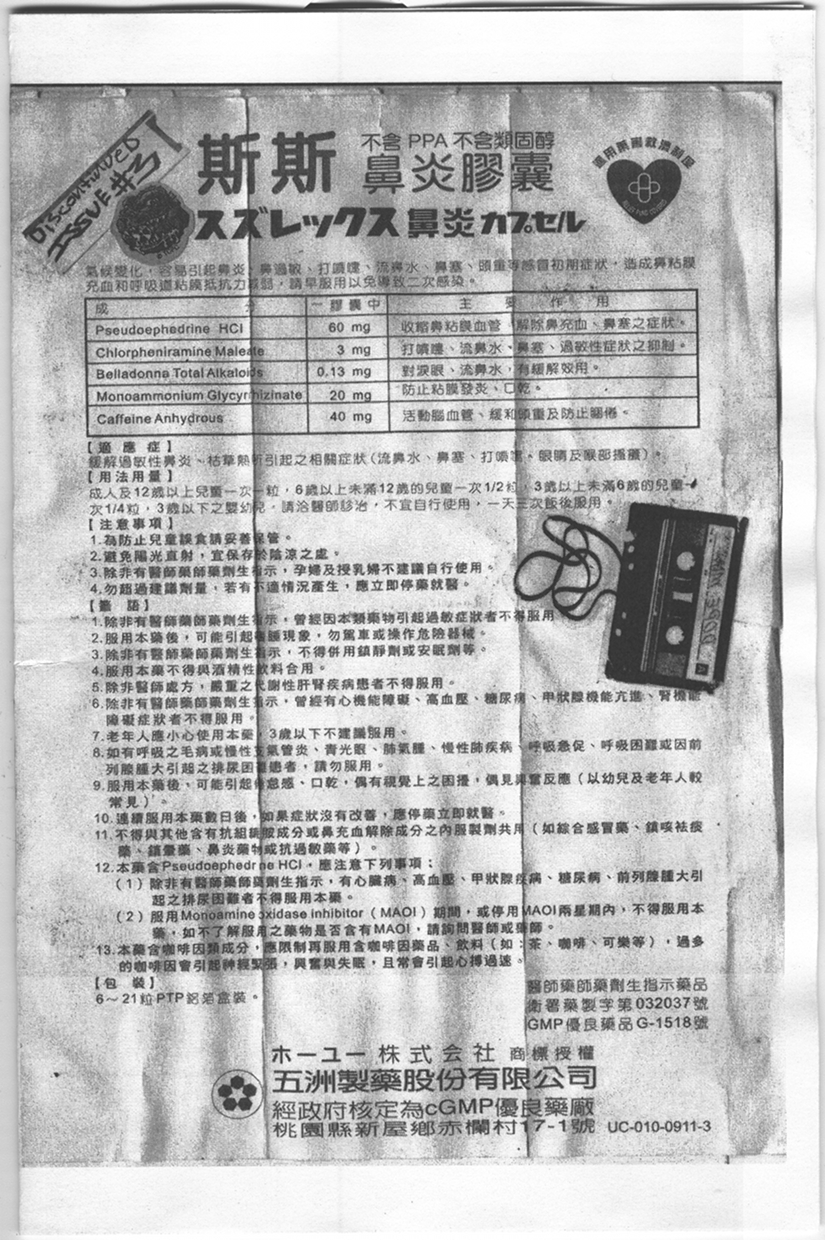 DISCONTINUED
ISSUE #3
斯斯
不含 PPA 不含類固醇
鼻炎膠囊
スズレックス 鼻炎 カプセル
氣候變化，容易引起鼻炎、鼻過敏、打噴嚏、流鼻水、鼻塞、頭重等感冒初期症狀，造成鼻粘膜
充血和呼吸道粘膜抵抗力減弱，請早服用以免導致二次感染。
成 分 一膠囊中 主 要 作 用
Pseudoephedrine HCl 60 mg 收縮鼻粘膜血管，解除鼻充血、鼻塞之症狀。
Chlorpheniramine Maleate 3 mg 打噴嚏、流鼻水、鼻塞、過敏性症狀之抑制。
Belladonna Total Alkaloids 0.13 mg 對淚眼、流鼻水，有緩解效用。
Monoammonium Glycyrrhizinate 20 mg 防止粘膜發炎、口乾。
Caffeine Anhydrous 40 mg 活動腦血管、緩和頭重及防止睏倦。
【適應症】
緩解過敏性鼻炎、枯草熱所引起之相關症狀（流鼻水、鼻塞、打噴嚏、眼睛及喉部搔癢）。
【用法用量】
成人及12歲以上兒童一次一粒，6歲以上未滿12歲的兒童一次1/2粒，3歲以上未滿6歲的兒童一
次1/4粒，3歲以下之嬰幼兒，請洽醫師診治，不宜自行使用，一天三次飯後服用。
【注意事項】
1.為防止兒童誤食請妥善保管。
2.避免陽光直射，宜保存於陰涼之處。
3.除非有醫師藥師藥劑生指示，孕婦及授乳婦不建議自行使用。
4.勿超過建議劑量，若有不適情況產生，應立即停藥就醫。
【警 語】
1.除非有醫師藥師藥劑生指示，曾經因本類藥物引起過敏症狀者不得服用
2.服用本藥後，可能引起嗜睡現象，勿駕車或操作危險器械。
3.除非有醫師藥師藥劑生指示，不得併用鎮靜劑或安眠劑等。
4.服用本藥不得與酒精性飲料合用。
5.除非醫師處方，嚴重之代謝性肝腎疾病患者不得服用。
6.除非有醫師藥師藥劑生指示，曾經有心機能障礙、高血壓、糖尿病、甲狀腺機能亢進、腎機能
障礙症狀者不得服用。
7.老年人應小心使用本藥，3歲以下不建議服用。
8.如有呼吸之毛病或慢性支氣管炎、青光眼、肺氣腫、慢性肺疾病、呼吸急促、呼吸困難或因前
列腺腫大引起之排尿困難患者，請勿服用。
9.服用本藥後，可能引起倦怠感、口乾，偶有視覺上之困擾，偶見興奮反應（以幼兒及老年人較
常見）。
10.連續服用本藥數日後，如果症狀沒有改善，應停藥立即就醫。
11.不得與其他含有抗組織胺成分或鼻充血解除成分之內服製劑共用（如綜合感冒藥、鎮咳祛痰
藥、鎮暈藥、鼻炎藥物或抗過敏藥等）。
12.本藥含Pseudoephedrine HCl，應注意下列事項：
（1）除非有醫師藥師藥劑生指示，有心臟病、高血壓、甲狀腺疾病、糖尿病、前列腺腫大引
起之排尿困難者不得服用本藥。
（2）服用Monoamine oxidase inhibitor（MAOI）期間，或停用MAOI兩星期內，不得服用本
藥，如不了解服用之藥物是否含有MAOI，請詢問醫師或藥師。
13.本藥含咖啡因類成分，應限制再服用含咖啡因藥品、飲料（如：茶、咖啡、可樂等），過多
的咖啡因會引起神經緊張，興奮與失眠，且常會引起心搏過速。
【包 裝】
6～21粒PTP鋁箔盒裝。
醫師藥師藥劑生指示藥品
衛署藥製字第032037號
GMP優良藥品G-1518號
ホーユー 株式会社 商標授權
五洲製藥股份有限公司
經政府核定為cGMP優良藥廠
桃園縣新屋鄉赤欄村17-1號 UC-010-0911-3